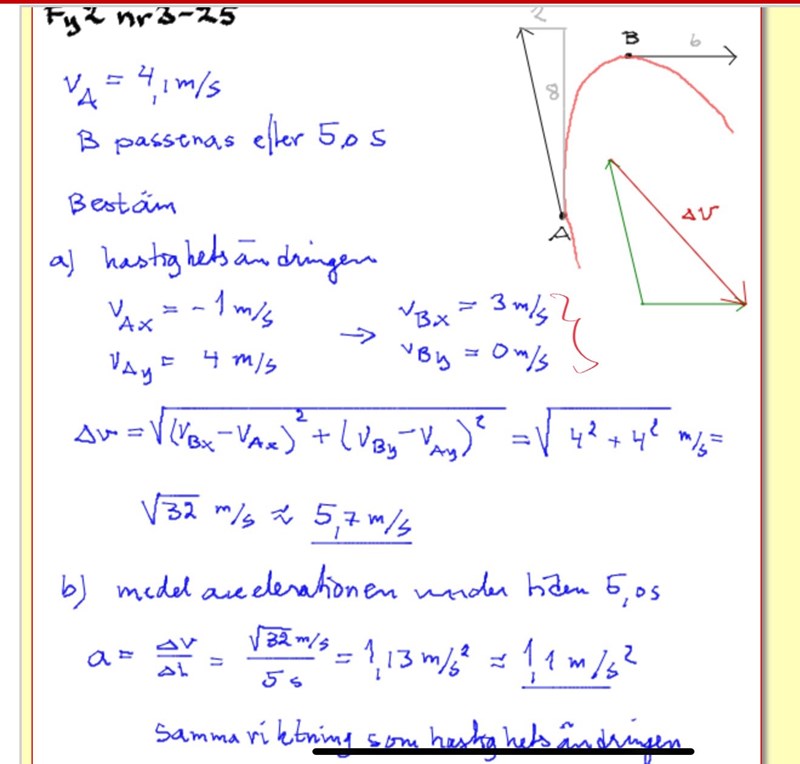 Fy2 nr 3-25
2
B
6
v_A = 4,1 m/s
8
B passeras efter 5,0 s
Bestäm
Δv
A
a) hastighetsändringen
v_Ax = -1 m/s → v_Bx = 3 m/s }
v_Ay = 4 m/s v_By = 0 m/s
Δv = √((v_Bx - v_Ax)² + (v_By - v_Ay)²) = √(4² + 4²) m/s =
√32 m/s ≈ 5,7 m/s
b) medelaccelerationen under tiden 5,0 s
a = Δv/Δt = √32 m/s / 5 s = 1,13 m/s² ≈ 1,1 m/s²
Samma riktning som hastighetsändringen